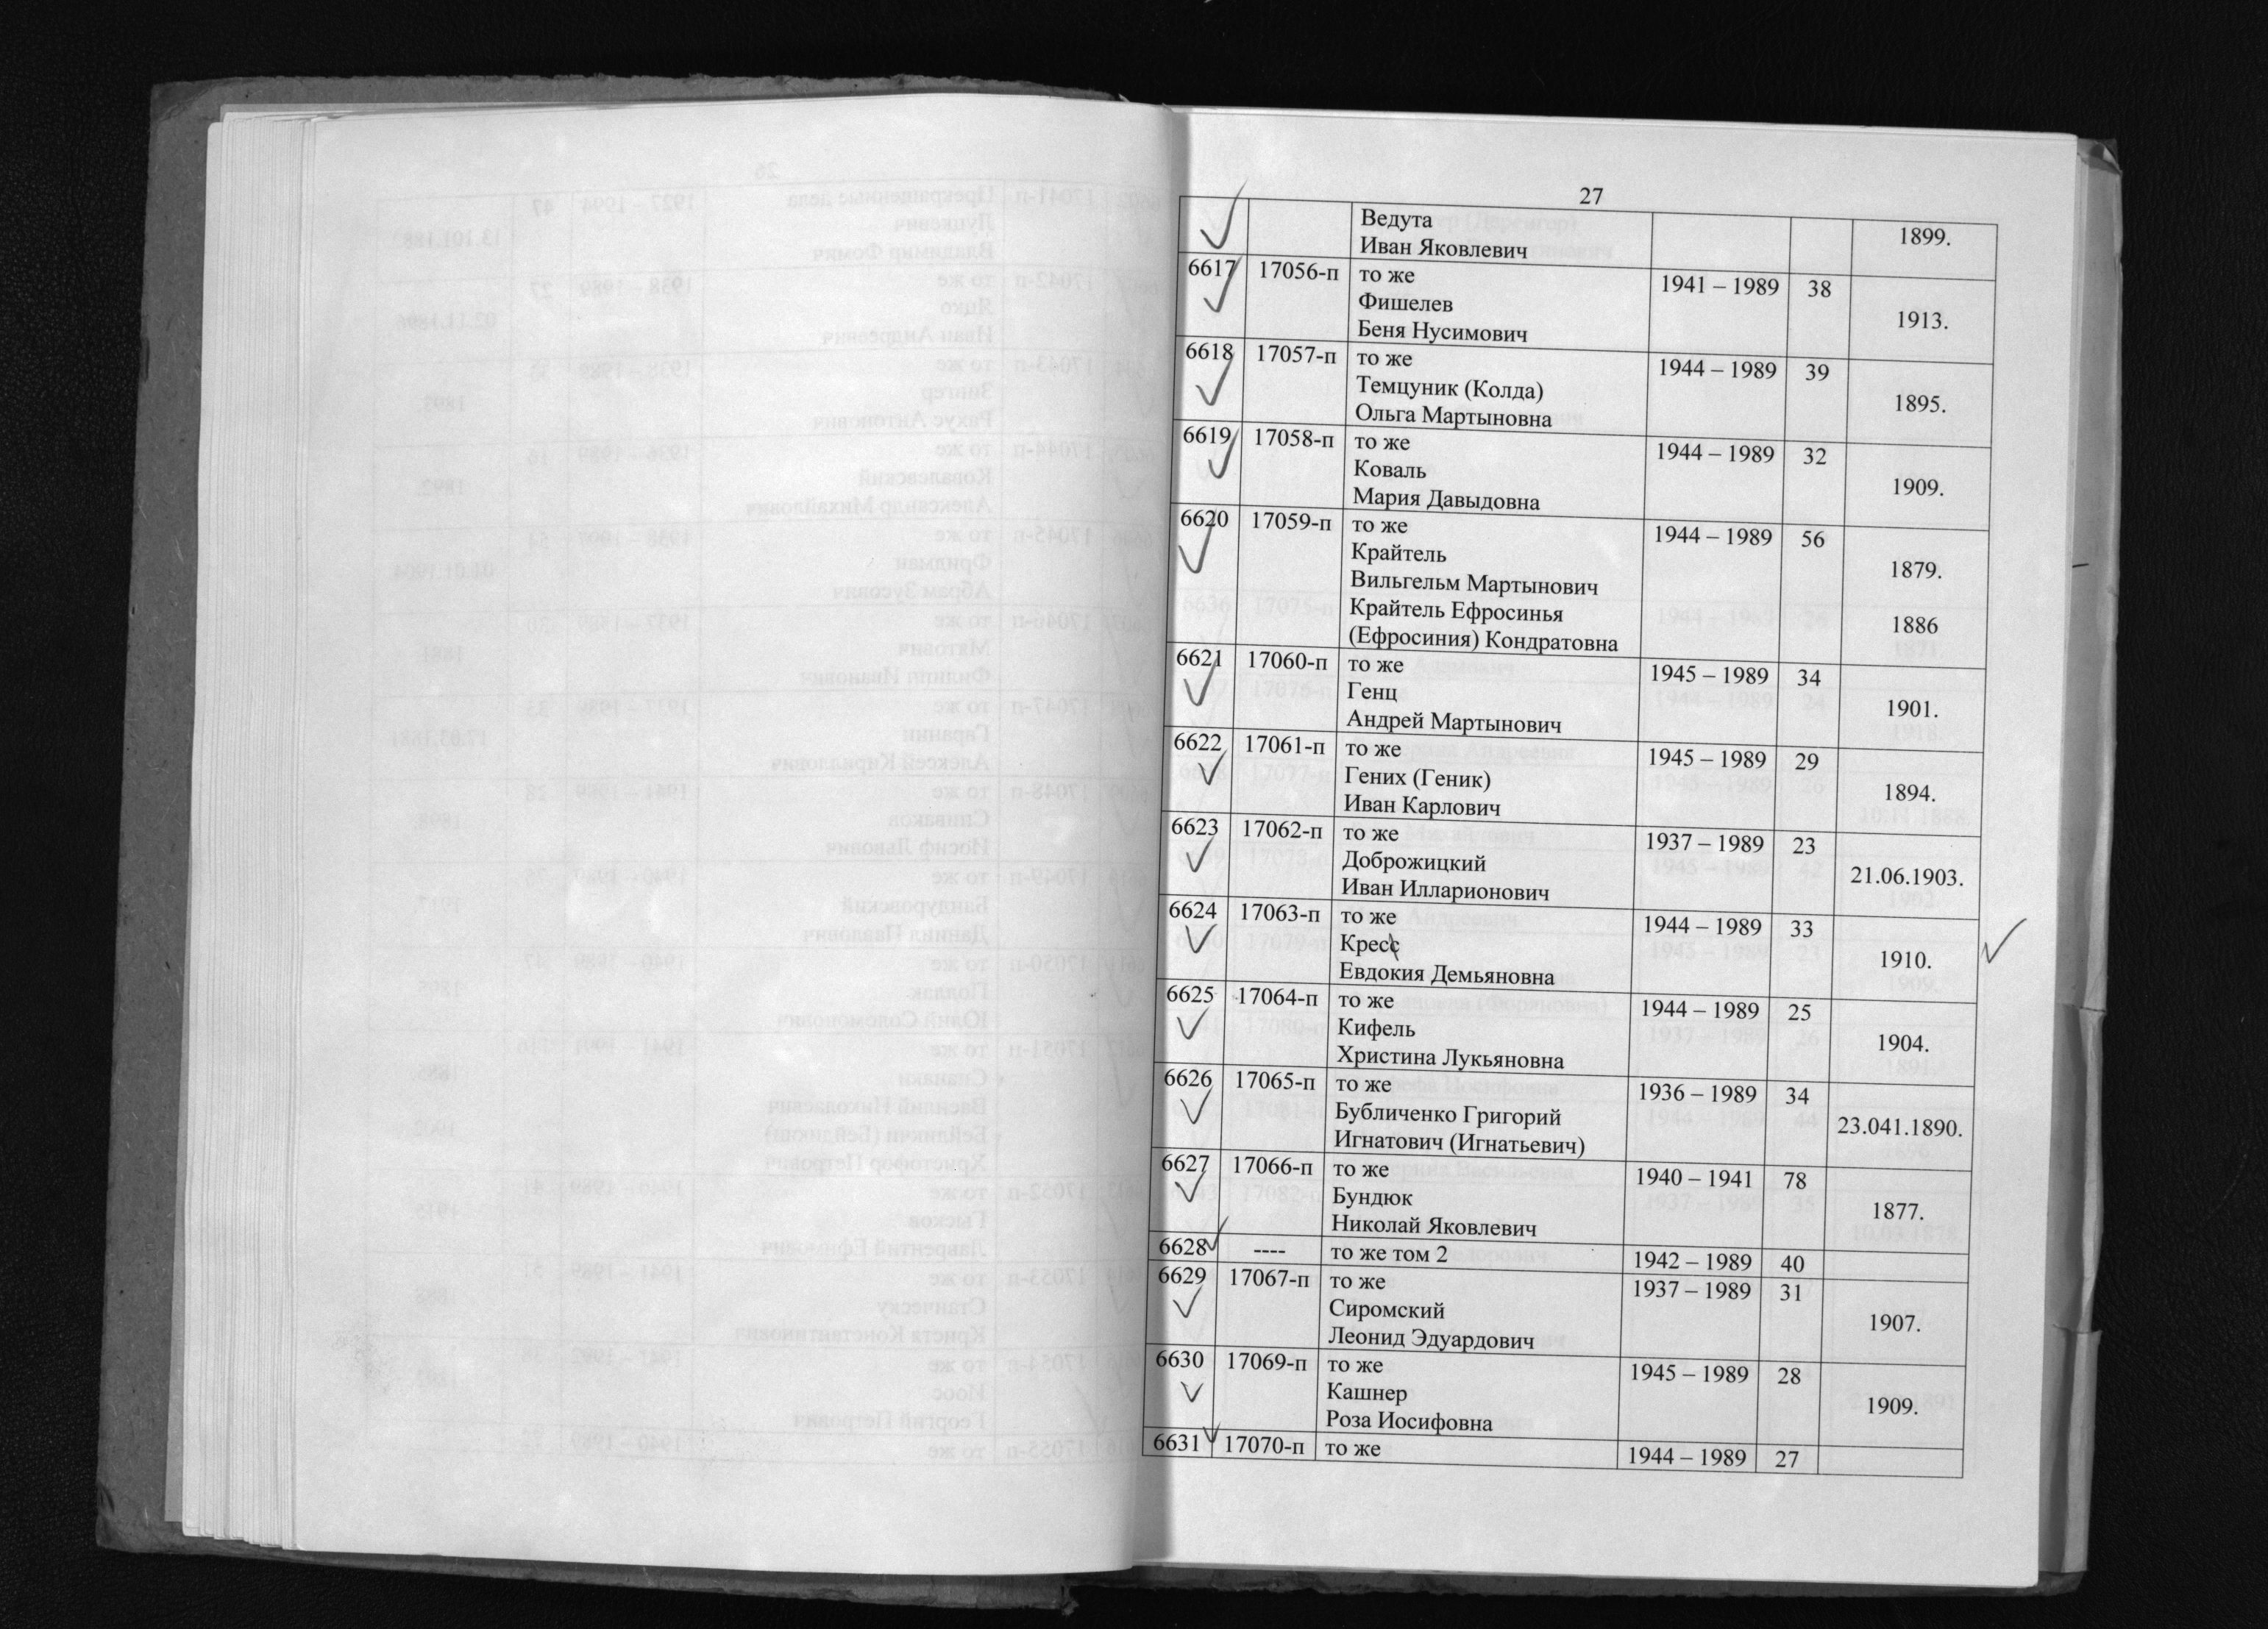 27
Ведута
Иван Яковлевич
1899.
6617 17056-п то же 1941 – 1989 38
Фишелев
Беня Нусимович
1913.
6618 17057-п то же 1944 – 1989 39
Темцуник (Колда)
Ольга Мартыновна
1895.
6619 17058-п то же 1944 – 1989 32
Коваль
Мария Давыдовна
1909.
6620 17059-п то же 1944 – 1989 56
Крайтель
Вильгельм Мартынович
1879.
Крайтель Ефросинья
(Ефросиния) Кондратовна
1886
6621 17060-п то же 1945 – 1989 34
Генц
Андрей Мартынович
1901.
6622 17061-п то же 1945 – 1989 29
Гених (Геник)
Иван Карлович
1894.
6623 17062-п то же 1937 – 1989 23
Доброжицкий
Иван Илларионович
21.06.1903.
6624 17063-п то же 1944 – 1989 33
Кресс
Евдокия Демьяновна
1910.
6625 17064-п то же 1944 – 1989 25
Кифель
Христина Лукьяновна
1904.
6626 17065-п то же 1936 – 1989 34
Бубличенко Григорий
Игнатович (Игнатьевич)
23.041.1890.
6627 17066-п то же 1940 – 1941 78
Бундюк
Николай Яковлевич
1877.
6628 ---- то же том 2 1942 – 1989 40
6629 17067-п то же 1937 – 1989 31
Сиромский
Леонид Эдуардович
1907.
6630 17069-п то же 1945 – 1989 28
Кашнер
Роза Иосифовна
1909.
6631 17070-п то же 1944 – 1989 27